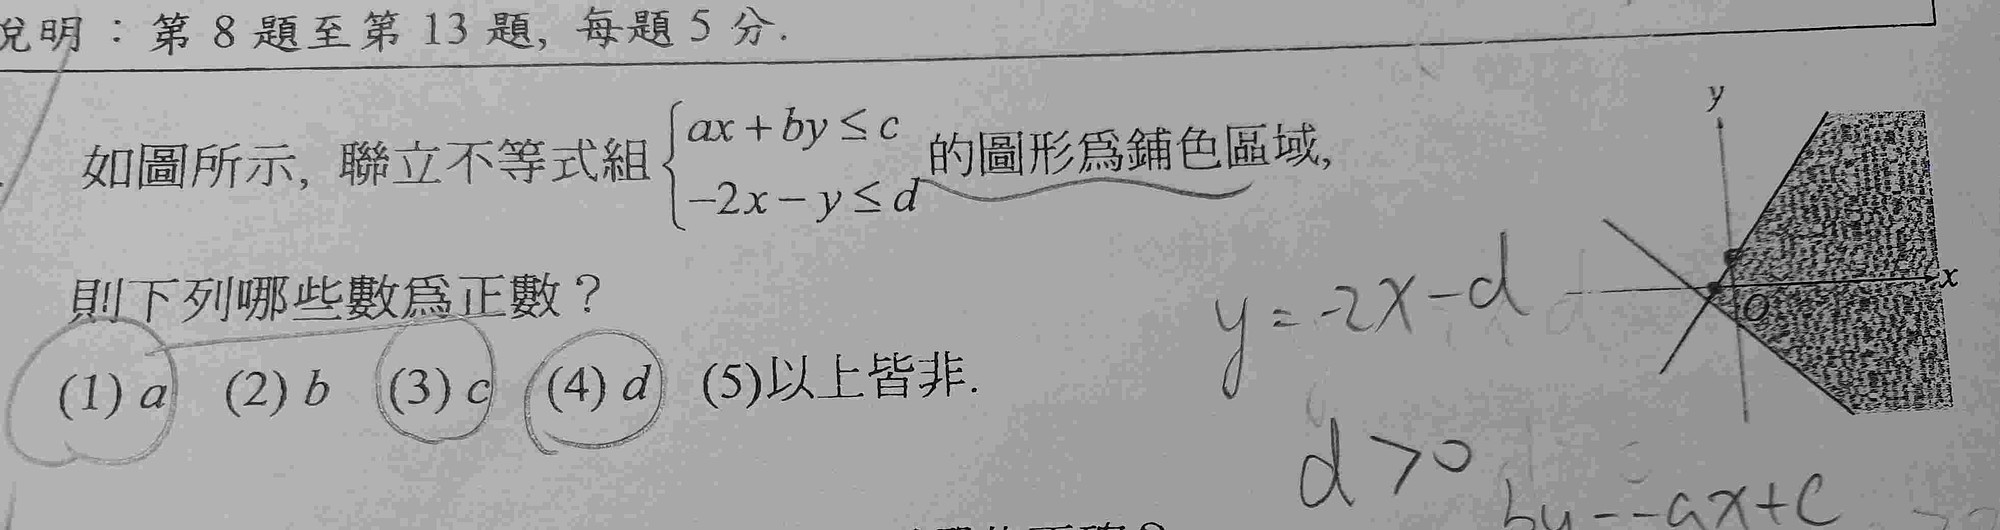 說明：第 8 題至第 13 題, 每題 5 分.
如圖所示, 聯立不等式組 { ax + by ≤ c
−2x − y ≤ d 的圖形為鋪色區域,
則下列哪些數為正數？
(1) a (2) b (3) c (4) d (5)以上皆非.
y
x
O
y = -2x - d
d > 0
by = -ax + c